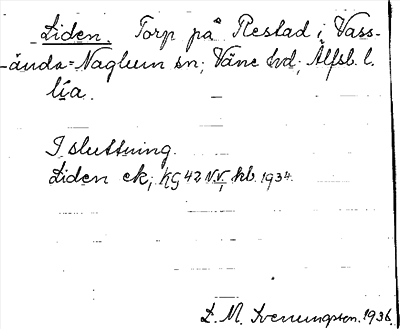 Liden. Torp på Restad i Vass-
ända-Naglum sn; Väne hd; Älfsb. l.
lía.
I sluttning.
Liden ek; KG 42 NV, kb. 1934.
L. M. Svenungsson. 1936.